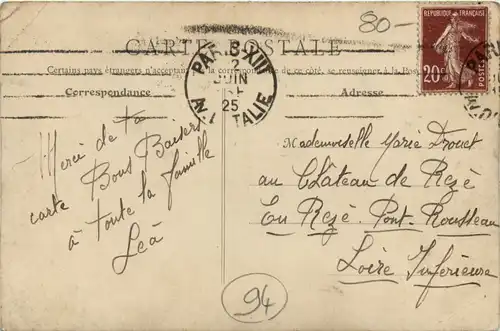 80-
CARTE POSTALE
Certains pays étrangers n'acceptant la correspondance de ce côté, se renseigner à la Poste
Correspondance
Adresse
PARIS XIII
2
JUIN
25
ITALIE
RÉPUBLIQUE FRANÇAISE
20c
POSTES
Merci de ta
carte Bons Baisers
à toute la famille
Léa
Mademoiselle Marie Drouet
au Château de Rezé
En Rezé. Pont. Rousseau
Loire Inférieure
94